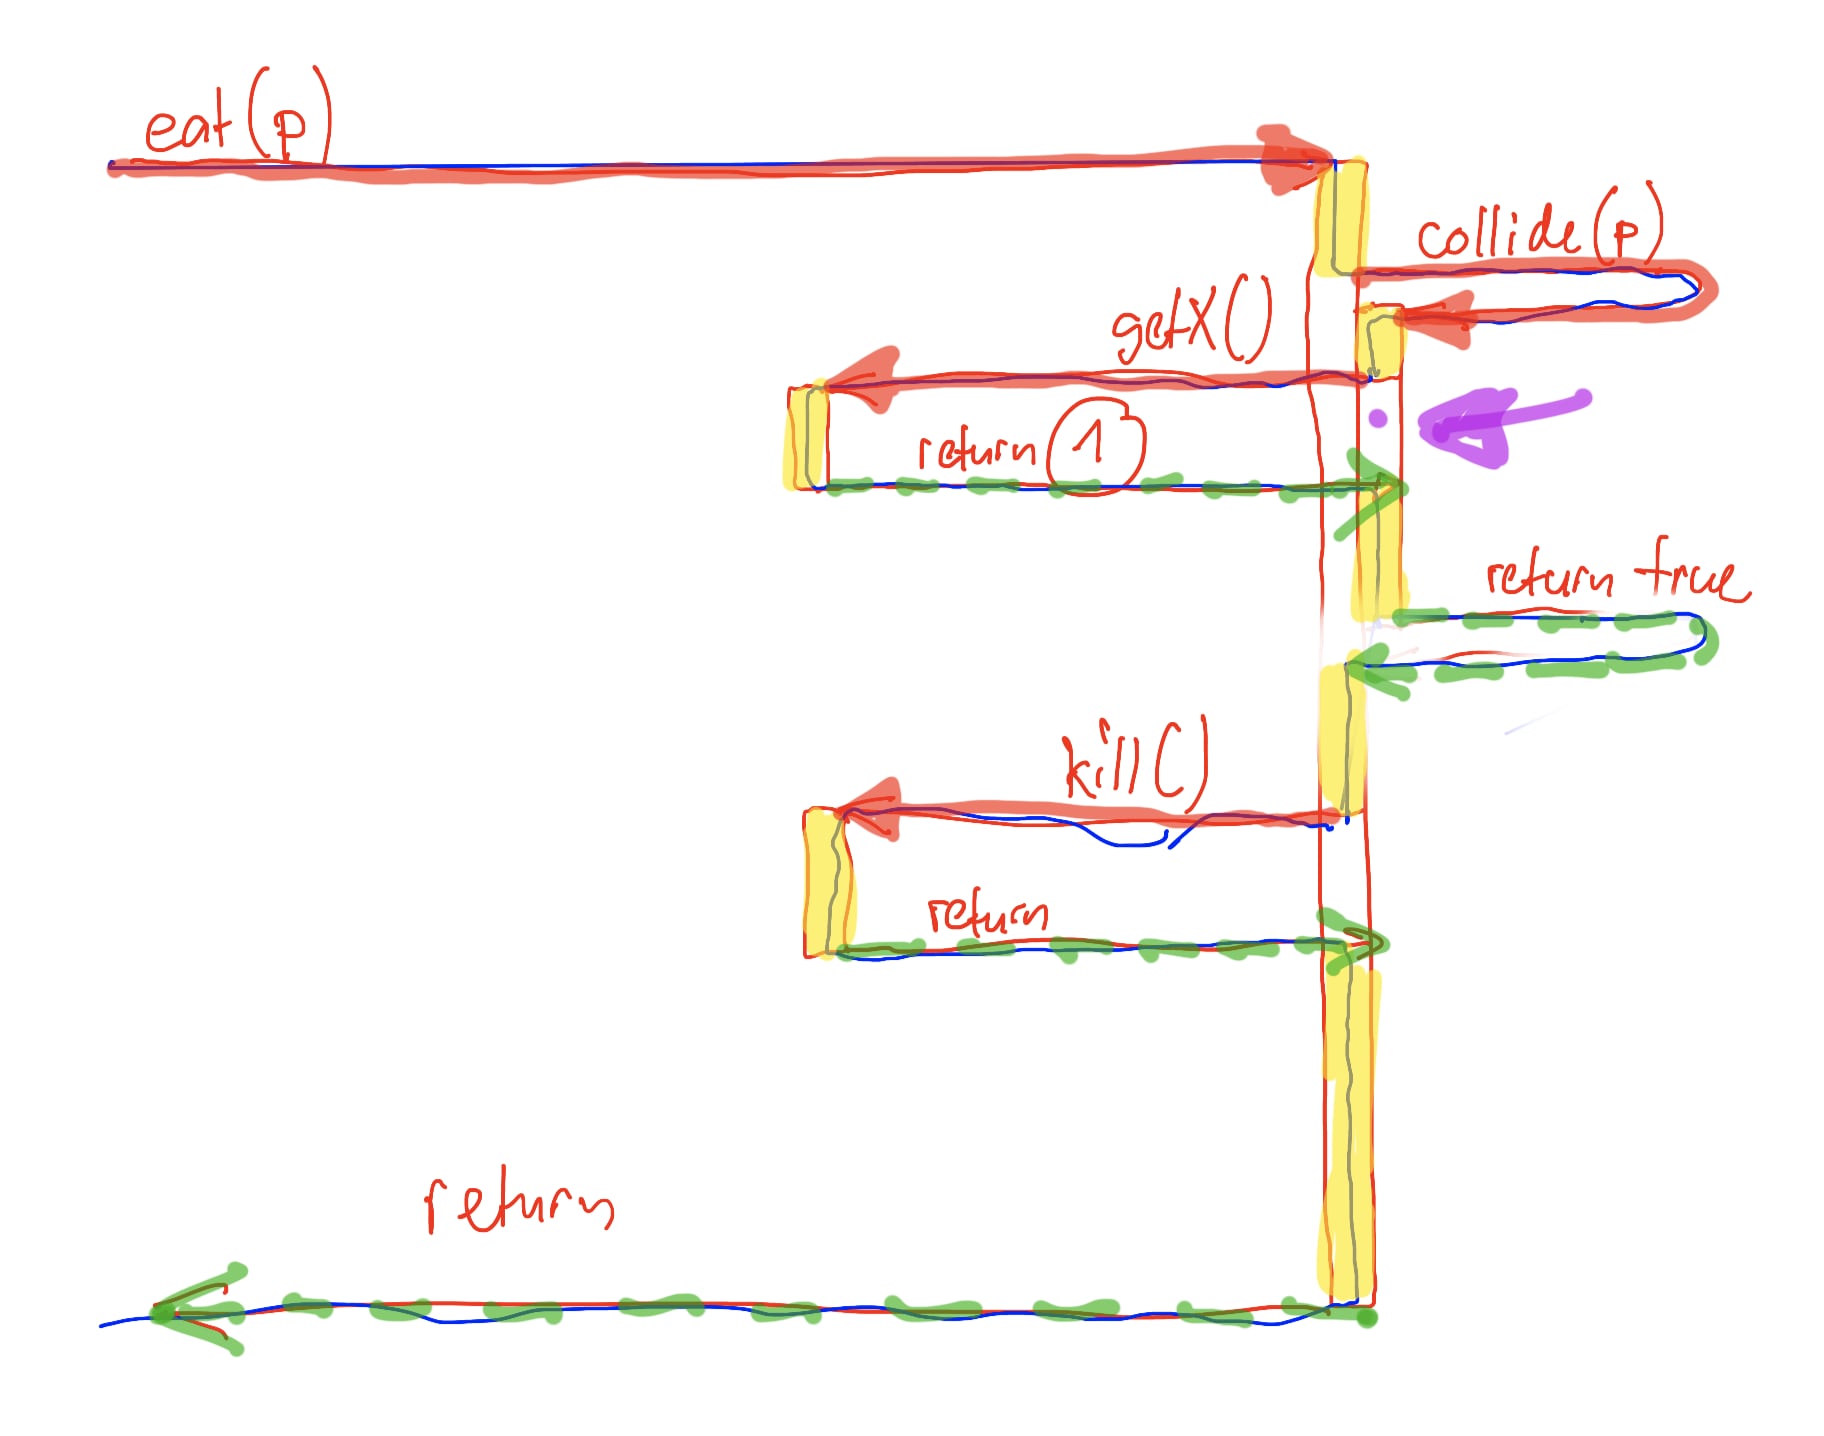 eat(p)
collide(p)
getX()
return 1
return true
kill()
return
return